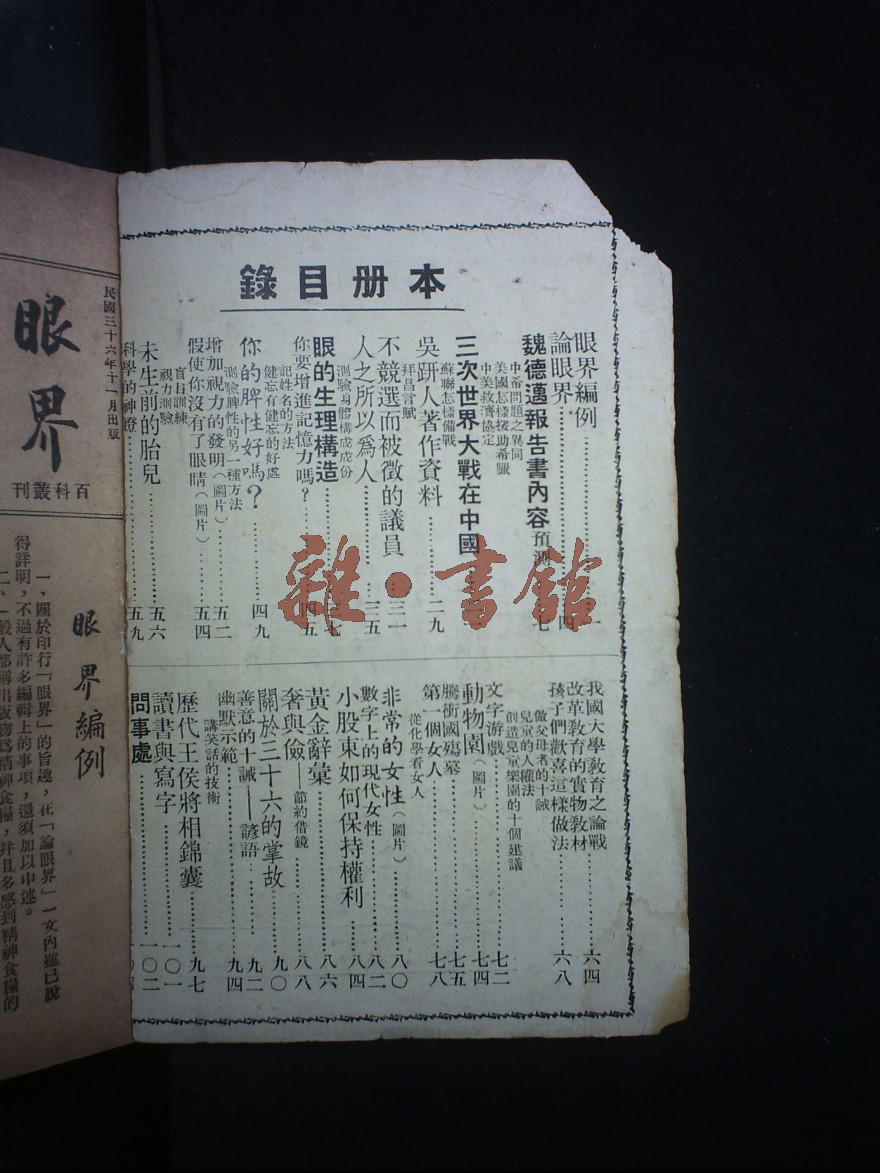 本册目錄
眼界編例……一
論眼界……四
魏德邁報告書內容預測……七
中希問題之異同
美國怎樣援助希臘
中美救濟協定
三次世界大戰在中國
蘇聯怎樣備戰
吳趼人著作資料……二九
拜昌言賦
不競選而被徵的議員……三一
人之所以爲人……三五
測驗身體構成成份
眼的生理構造……三七
你要增進記憶力嗎?……四五
記姓名的方法
健忘有健忘的好處
你的脾性好嗎?……四九
測驗脾性的另一種方法
增加視力的發明(圖片)……五二
假使你沒有了眼睛(圖片)……五四
盲目訓練
視力測驗
未生前的胎兒……五六
科學的神燈……五九
我國大學敎育之論戰……六四
改革敎育的實物敎材
孩子們歡喜這樣做法……六八
做父母者的十誡
兒童的人權法
創造兒童樂園的十個建議
文字游戲……七二
動物園(圖片)……七四
騰衝國殤墓……七五
第一個女人……七八
從化學看女人
非常的女性(圖片)……八〇
數字上的現代女性……八二
小股東如何保持權利……八四
黃金辭彙……八六
奢與儉——節約借鏡……八八
關於三十六的掌故……九〇
善意的十誡——諺語……九二
幽默示範……九四
講笑話的技術
歷代王侯將相錦囊……九七
讀書與寫字……一〇一
問事處……一〇二
雜·書館
民國三十六年十一月出版
眼界
百科叢刊
眼界編例
一、關於印行「眼界」的旨趣,在「論眼界」一文內雖已說
得詳明,不過有許多編輯上的事項,還須加以申述。
二、一般人都稱出版物爲精神食糧,幷且多感到精神食糧的